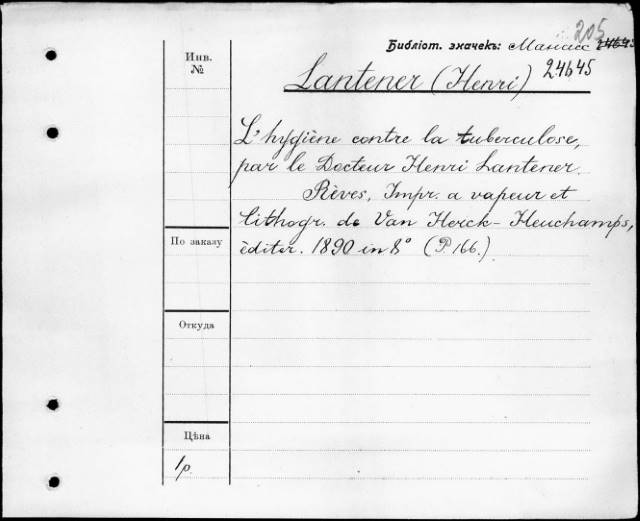 205
Библіот. значекъ: Манасс 24645
Инв.
№
Lantener (Henri) 24645
L'hygiène contre la tuberculose,
par le Docteur Henri Lantener.
Rèves, Impr. a vapeur et
lithogr. de Van Herck-Heuchamps,
èditer. 1890 in 8° (P. 166.)
По заказу
Откуда
Цѣна
1р.